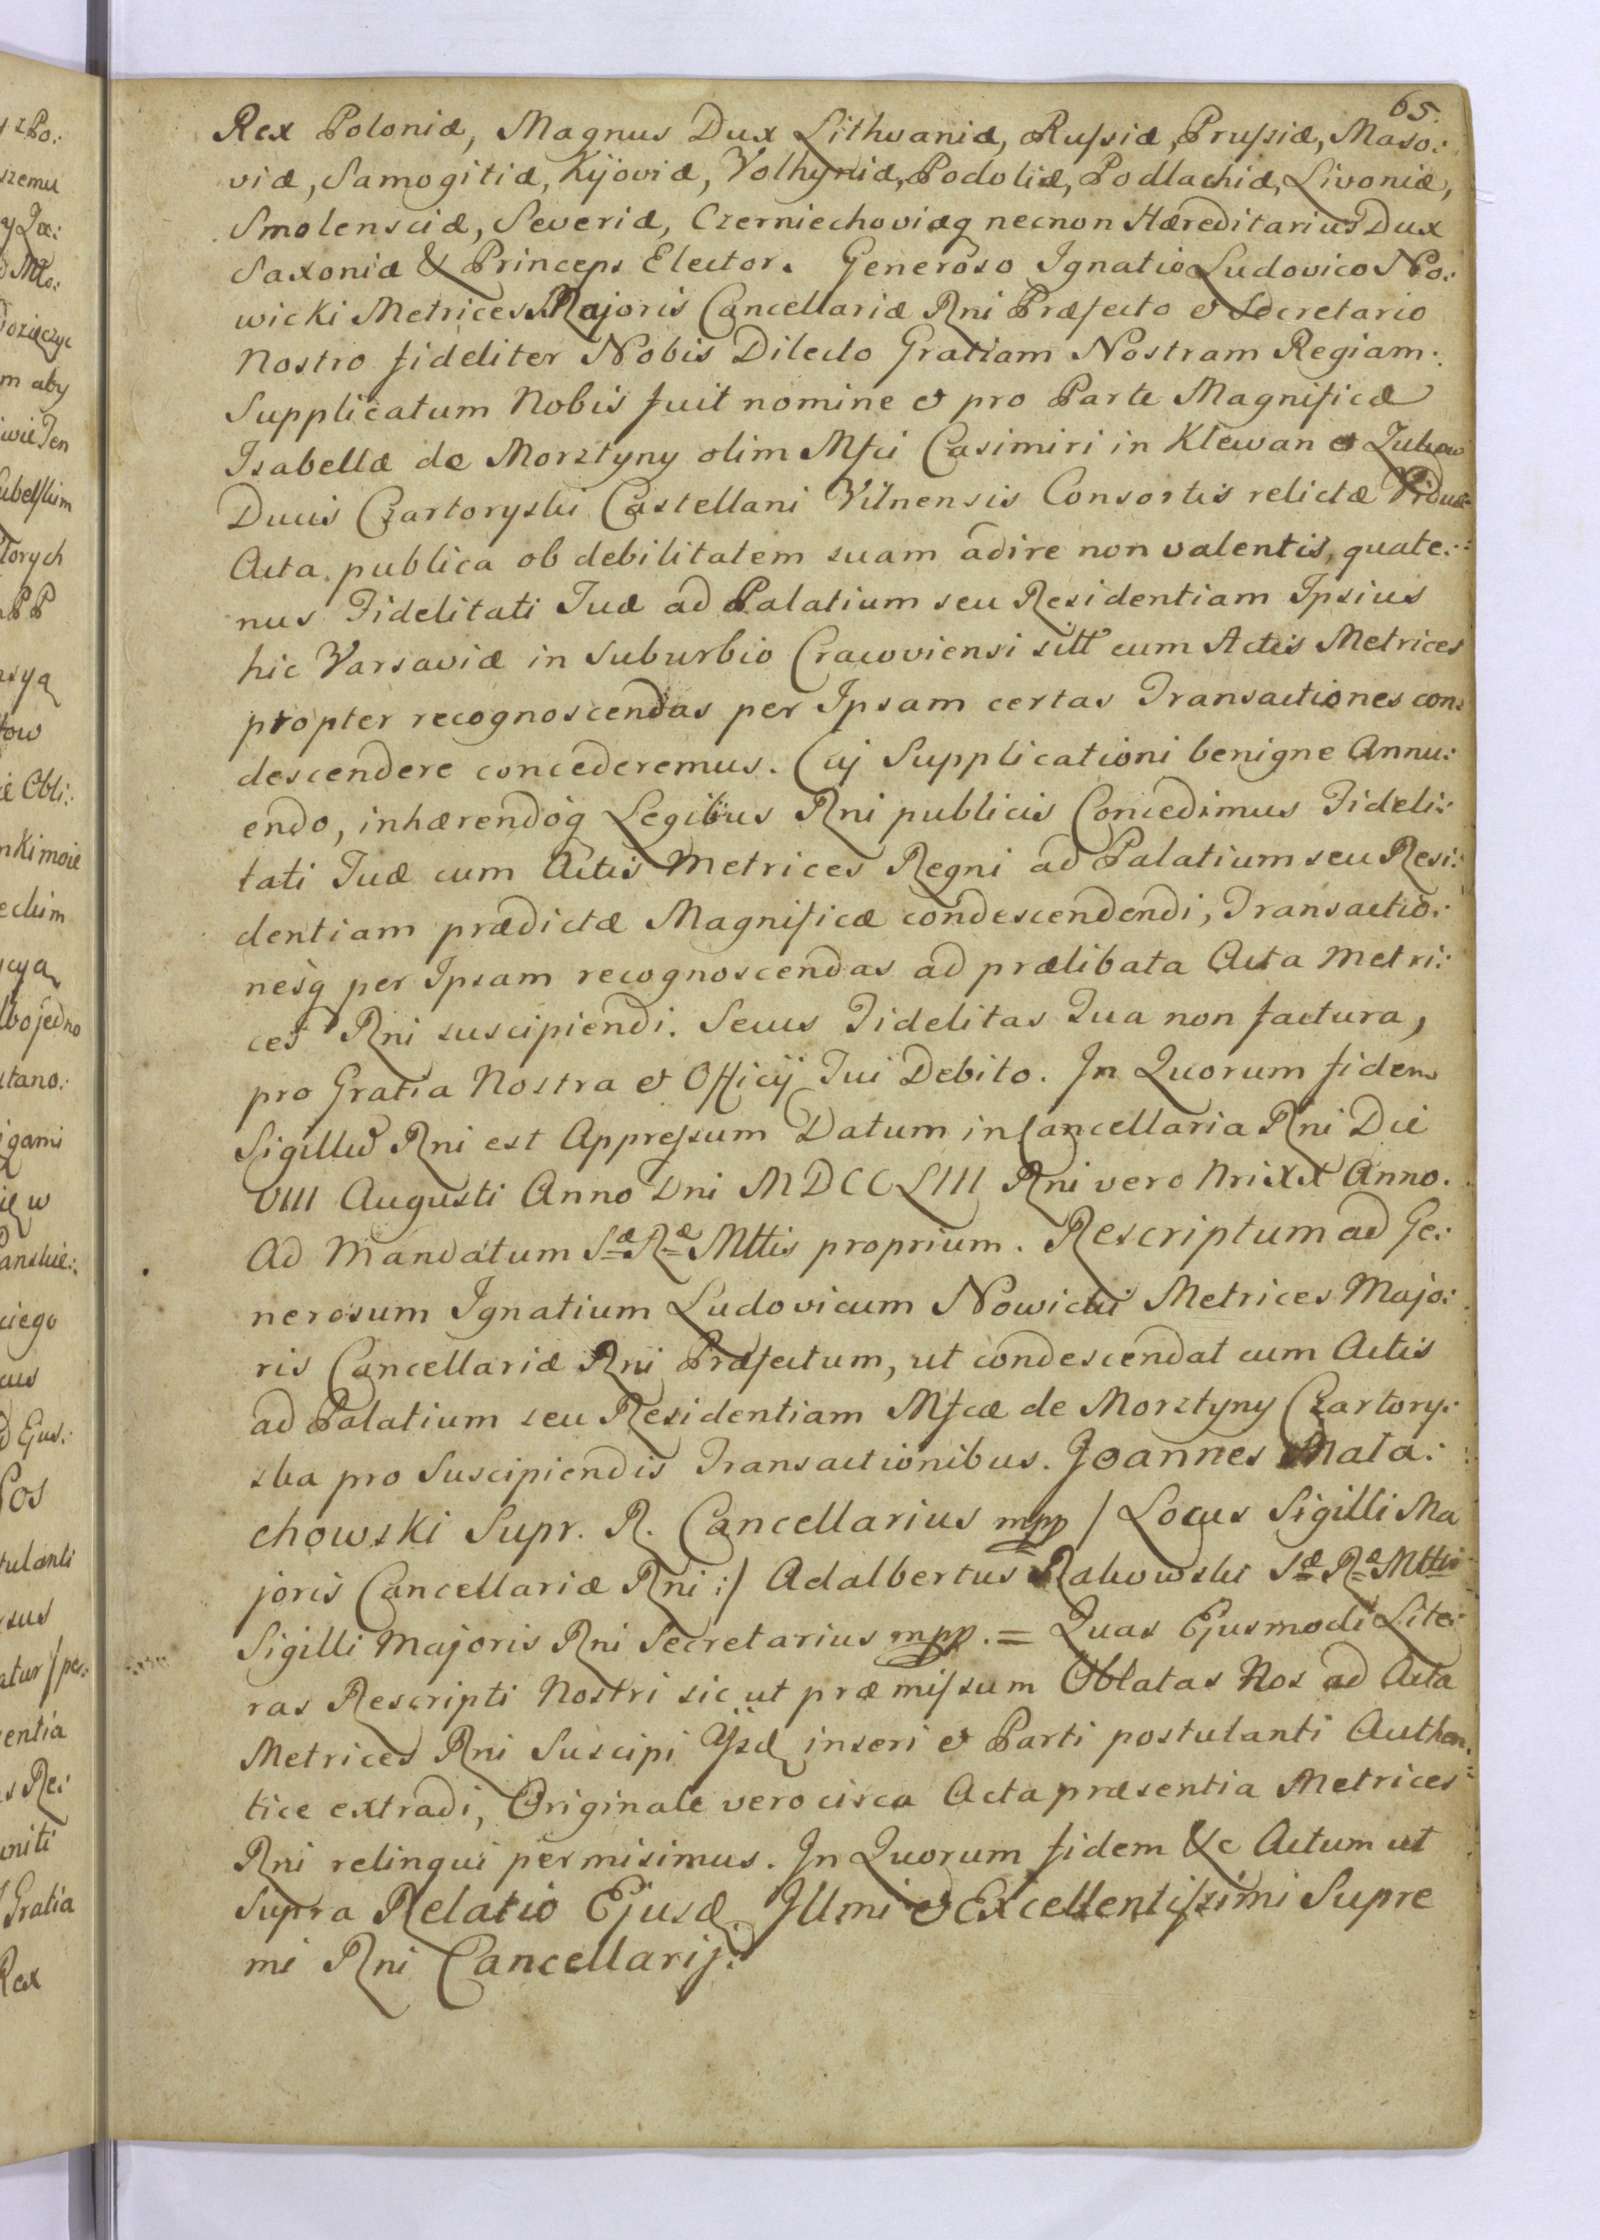 65.
Rex Poloniæ, Magnus Dux Lithvaniæ, Russiæ, Prussiæ, Maso:
viæ, Samogitiæ, Kijoviæ, Volhyniæ, Podoliæ, Podlachiæ, Livoniæ,
Smolensciæ, Severiæ, Czerniechoviæq necnon Hæreditarius Dux
Saxoniæ & Princeps Elector. Generoso Ignatio Ludovico No:
wicki Metrices Majoris Cancellariæ Rni Præfecto et Secretario
Nostro fideliter Nobis Dilecto Gratiam Nostram Regiam.
Supplicatum Nobis fuit nomine et pro Parte Magnificæ
Isabellæ de Morsztyny olim Mfci Casimiri in Klewan et Zukow
Ducis Czartoryski Castellani Vilnensis Consortis relictæ Viduæ
Acta publica ob debilitatem suam adire non valentis, quate:
nus Fidelitati Tuæ ad Palatium seu Residentiam Ipsius
hic Varsaviæ in Suburbio Cracoviensi sitt cum Actis Metrices
propter recognoscendas per Ipsam certas Transactiones con:
descendere concederemus. Cuj Supplicationi benigne Annu:
endo, inhærendoq Legibus Rni publicis Concedimus Fideli:
tati Tuæ cum Actis Metrices Regni ad Palatium seu Resi:
dentiam prædictæ Magnificæ condescendendi, Transactio:
nesq per Ipsam recognoscendas ad prælibata Acta Metri:
ces Rni suscipiendi. Secus Fidelitas Tua non factura,
pro Gratia Nostra et Officij Tui Debito. In Quorum fidem
Sigillū Rni est Appressum Datum in Cancellaria Rni Die
VIII Augusti Anno Dni MDCCLIII Rni vero Nri XX Anno.
Ad Mandatum Sæ Ræ Mttis proprium. Rescriptum ad Ge:
nerosum Ignatium Ludovicum Nowicki Metrices Majo:
ris Cancellariæ Rni Præfectum, ut condescendat cum Actis
ad Palatium seu Residentiam Mfcæ de Morsztyny Czartory:
ska pro Suscipiendis Transactionibus. Joannes Mała:
chowski Supr. R. Cancellarius mpp / Locus Sigilli Ma
joris Cancellariæ Rni :/ Adalbertus Rakowski Sæ Ræ Mttis
Sigilli Majoris Rni Secretarius mpp. = Quas Ejusmodi Lite:
ras Rescripti Nostri sic ut præmissum Oblatas Nos ad Acta
Metrices Rni Suscipi Ijsd inseri et Parti postulanti Authen:
tice extradi, Originale vero circa Acta præsentia Metrices
Rni relinqui permisimus. In Quorum fidem &c Actum ut
Supra Relatio Ejusd. Illmi et Excellentissimi Supre
mi Rni Cancellarij.